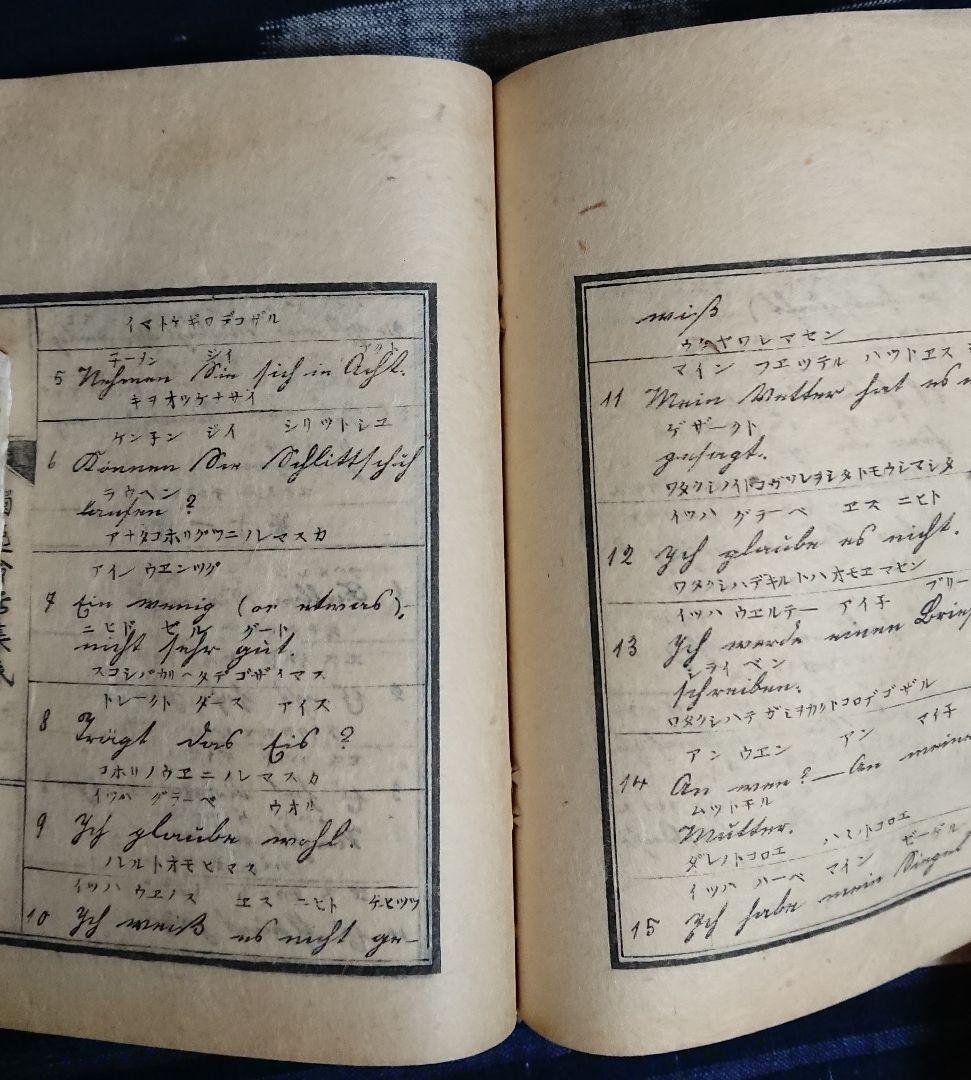 イマトケギワデコザル
子ーメン ジイ アクト
5 Nehmen Sie sich in Acht.
キヲオツケナサイ
ケン子ン ジイ シリツトシユ
6 Können Sie Schlittschuh
ラウヘン
laufen?
アナタコホリグツニノルマスカ
アイン ウエンツグ
7 Ein wenig (or etwas),
ニヒド ゼル グート
nicht sehr gut.
スコシバカリヘタデゴザイマス
トレークト ダース アイス
8 Trägt das Eis?
コホリノウエニノレマスカ
イツハ グラーベ ウオル
9 Ich glaube wohl.
ノルトオモヒマス
イツハ ウエイス エス ニヒト ケヒツツ
10 Ich weiß es nicht ge-
wiß
マイン フエツテル ハツトエス
11 Mein Vetter hat es
ゲザークト
gesagt.
イツハ グラーベ エス ニヒト
12 Ich glaube es nicht.
ワタクシハデキルトハオモエマセン
イツハ ウエルテー アイ子 ブリー
13 Ich werde einen Brief
シライベン
schreiben.
ワタクシハテガミヲカクトコロデゴザル
アン ウエン アン マイ子
14 An wen? — An meine
ムツトテル
Mutter.
ダレノトコロエ ハハノトコロエ
イツハ ハーベ マイン ゼーゲル
15 Ich habe mein Siegel